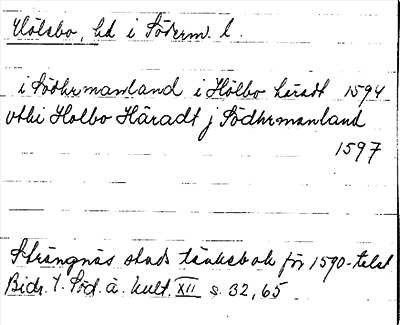 Hölebo, hd i Söderm. l.
i Södhrmanland i Hölbo häradt 1594
vthi Holbo Häradt j Södhrmanland
1597
Strängnäs stads tänkebok för 1590-talet
Bidr. t. Söd. ä. kult. XII s. 32, 65